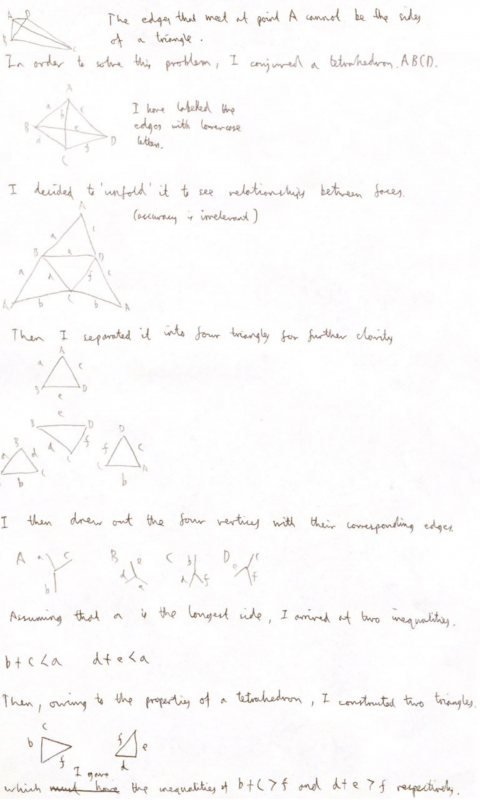 A D
The edges that meet at point A cannot be the sides
B
C
of a triangle.
In order to solve this problem, I conjured a tetrahedron ABCD.
A
a b c
I have labelled the
B e D
edges with lowercase
d f
letters.
C
I decided to 'unfold' it to see relationships between faces.
A
(accuracy is irrelevant)
a c
B e D
a d f c
C
A b b A
Then I separated it into four triangles for further clarity
A
a c
B e D
e
B D D
B d f f c
a d C
A b C C b A
I then drew out the four vertices with their corresponding edges.
A a c b
B e d a
C b d f
D e c f
Assuming that a is the longest side, I arrived at two inequalities.
b + c < a d + e < a
Then, owing to the properties of a tetrahedron, I constructed two triangles.
c
b f
f e
d
I gave
which must have the inequalities of b + c > f and d + e > f respectively.